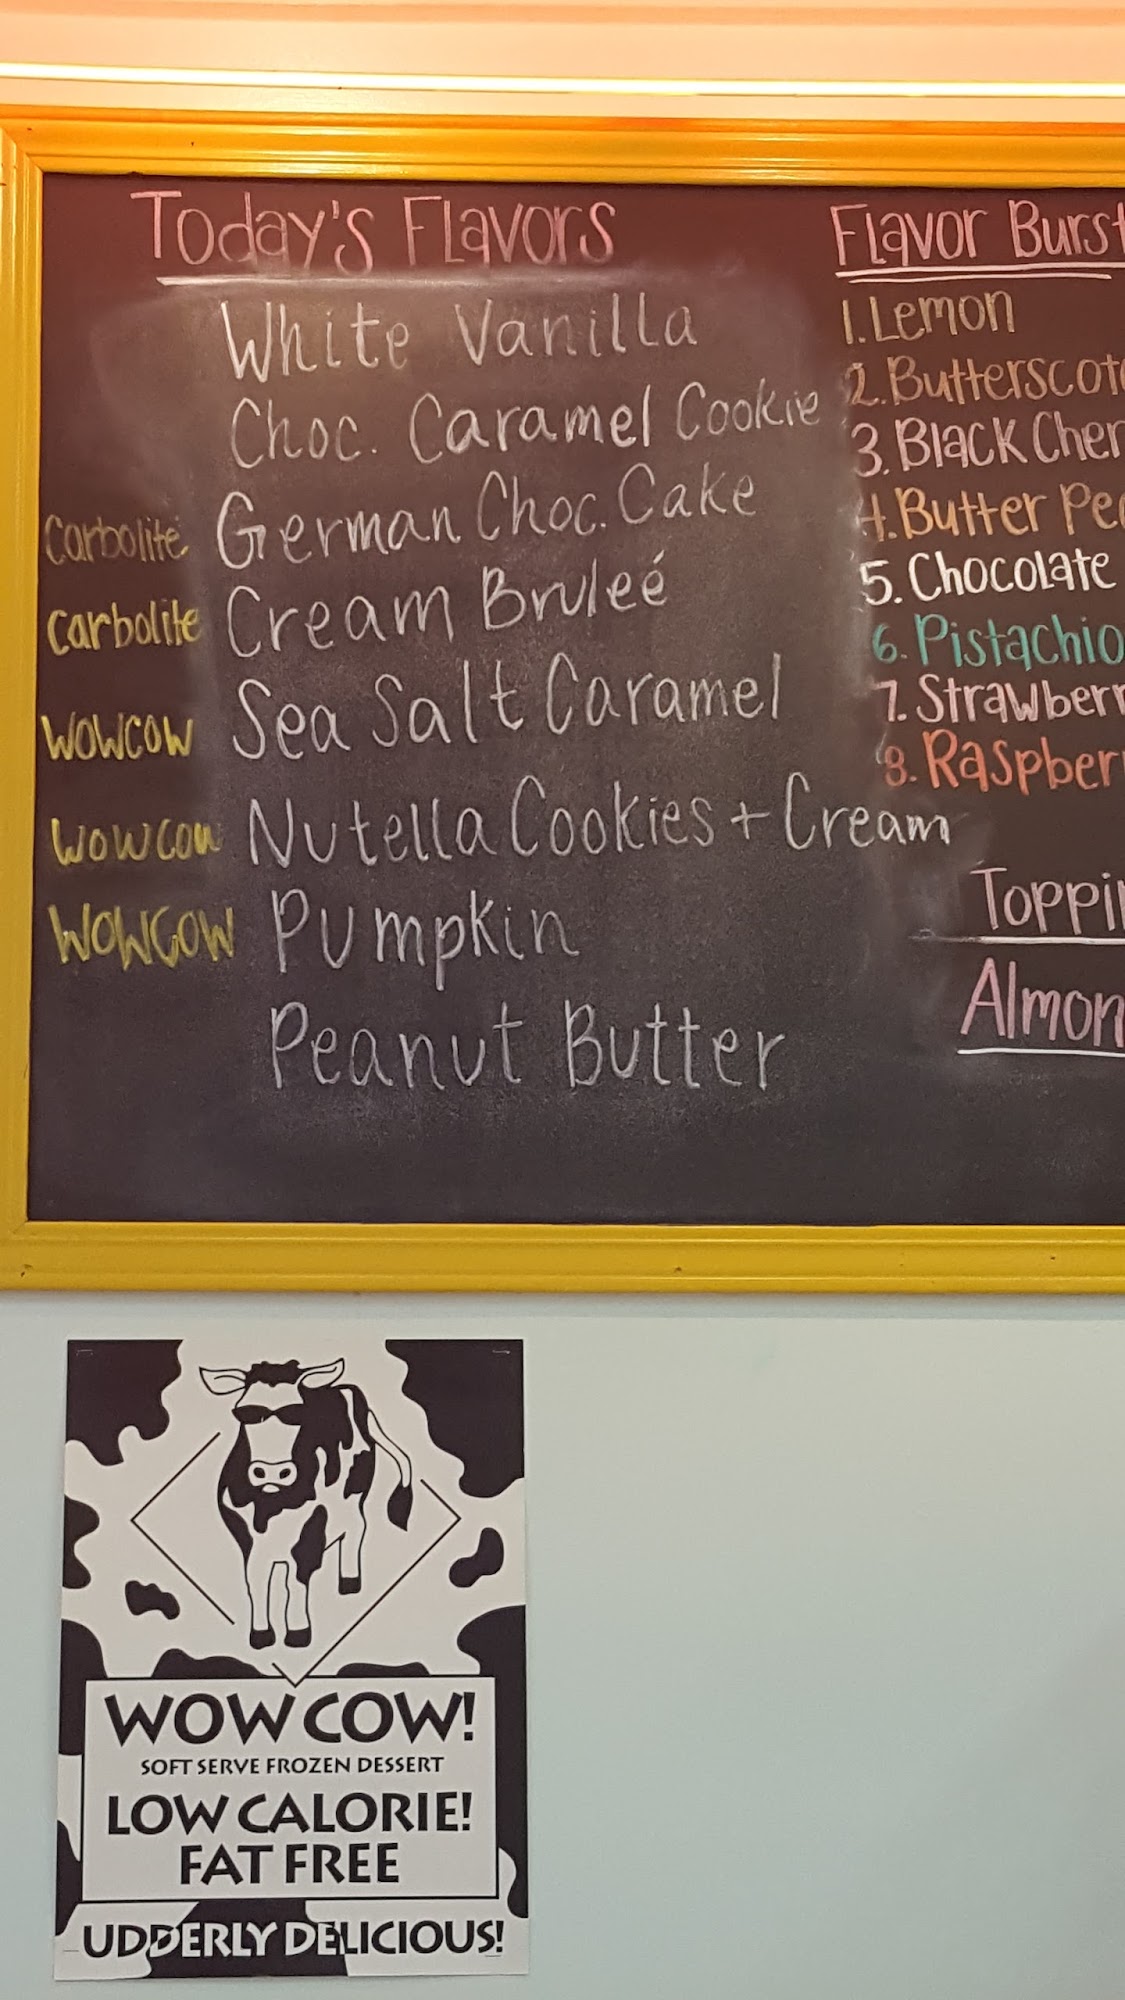 Today's Flavors
White Vanilla
Choc. Caramel Cookie
Carbolite German Choc. Cake
Carbolite Cream Bruleé
WOWCOW Sea Salt Caramel
WOWCOW Nutella Cookies + Cream
WOWCOW Pumpkin
Peanut Butter
Flavor Burst
1. Lemon
2. Butterscot
3. Black Cher
4. Butter Pe
5. Chocolate
6. Pistachio
7. Strawberr
8. Raspber
Toppi
Almon
WOW COW!
SOFT SERVE FROZEN DESSERT
LOW CALORIE!
FAT FREE
UDDERLY DELICIOUS!